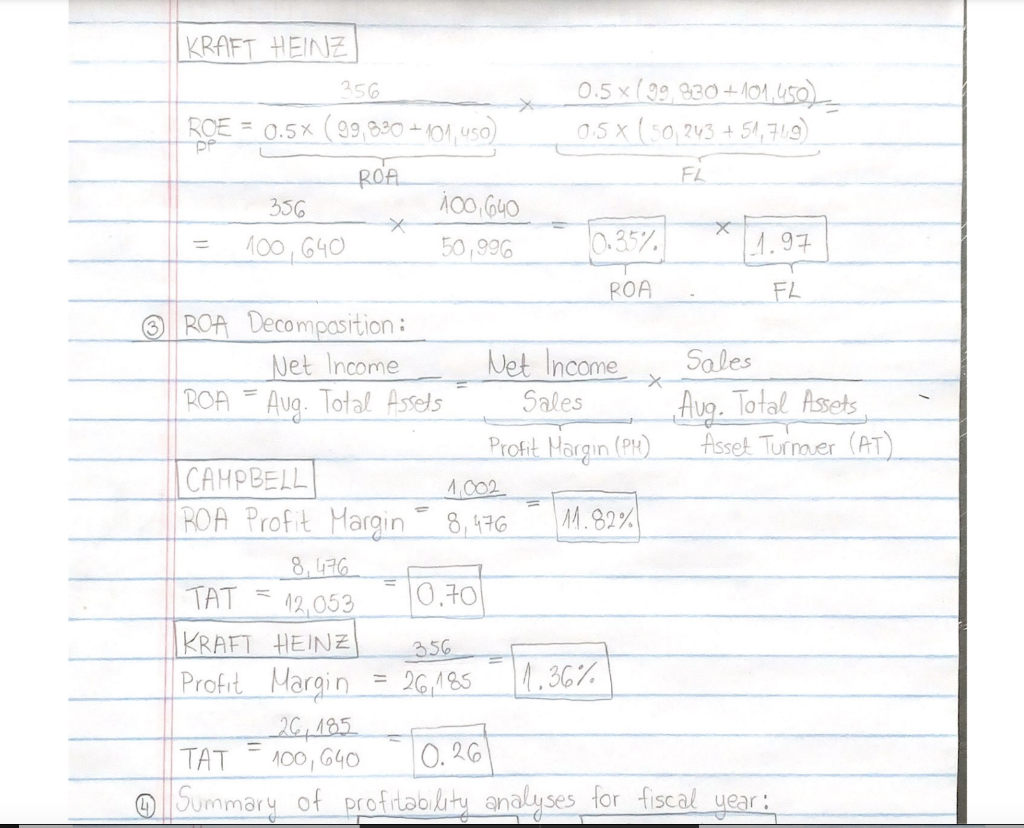 KRAFT HEINZ
ROE DP = 356 / 0.5 x (99,830 + 101,450) × 0.5 x (99,830 + 101,450) / 0.5 x (50,243 + 51,749) =
ROA FL
= 356 / 100,640 × 100,640 / 50,996 = 0.35% × 1.97
ROA FL
③ ROA Decomposition:
ROA = Net Income / Avg. Total Assets = Net Income / Sales × Sales / Avg. Total Assets
Profit Margin (PM) Asset Turnover (AT)
CAMPBELL
ROA Profit Margin = 1,002 / 8,476 = 11.82%
TAT = 8,476 / 12,053 = 0.70
KRAFT HEINZ
Profit Margin = 356 / 26,185 = 1.36%
TAT = 26,185 / 100,640 = 0.26
④ Summary of profitability analyses for fiscal year: